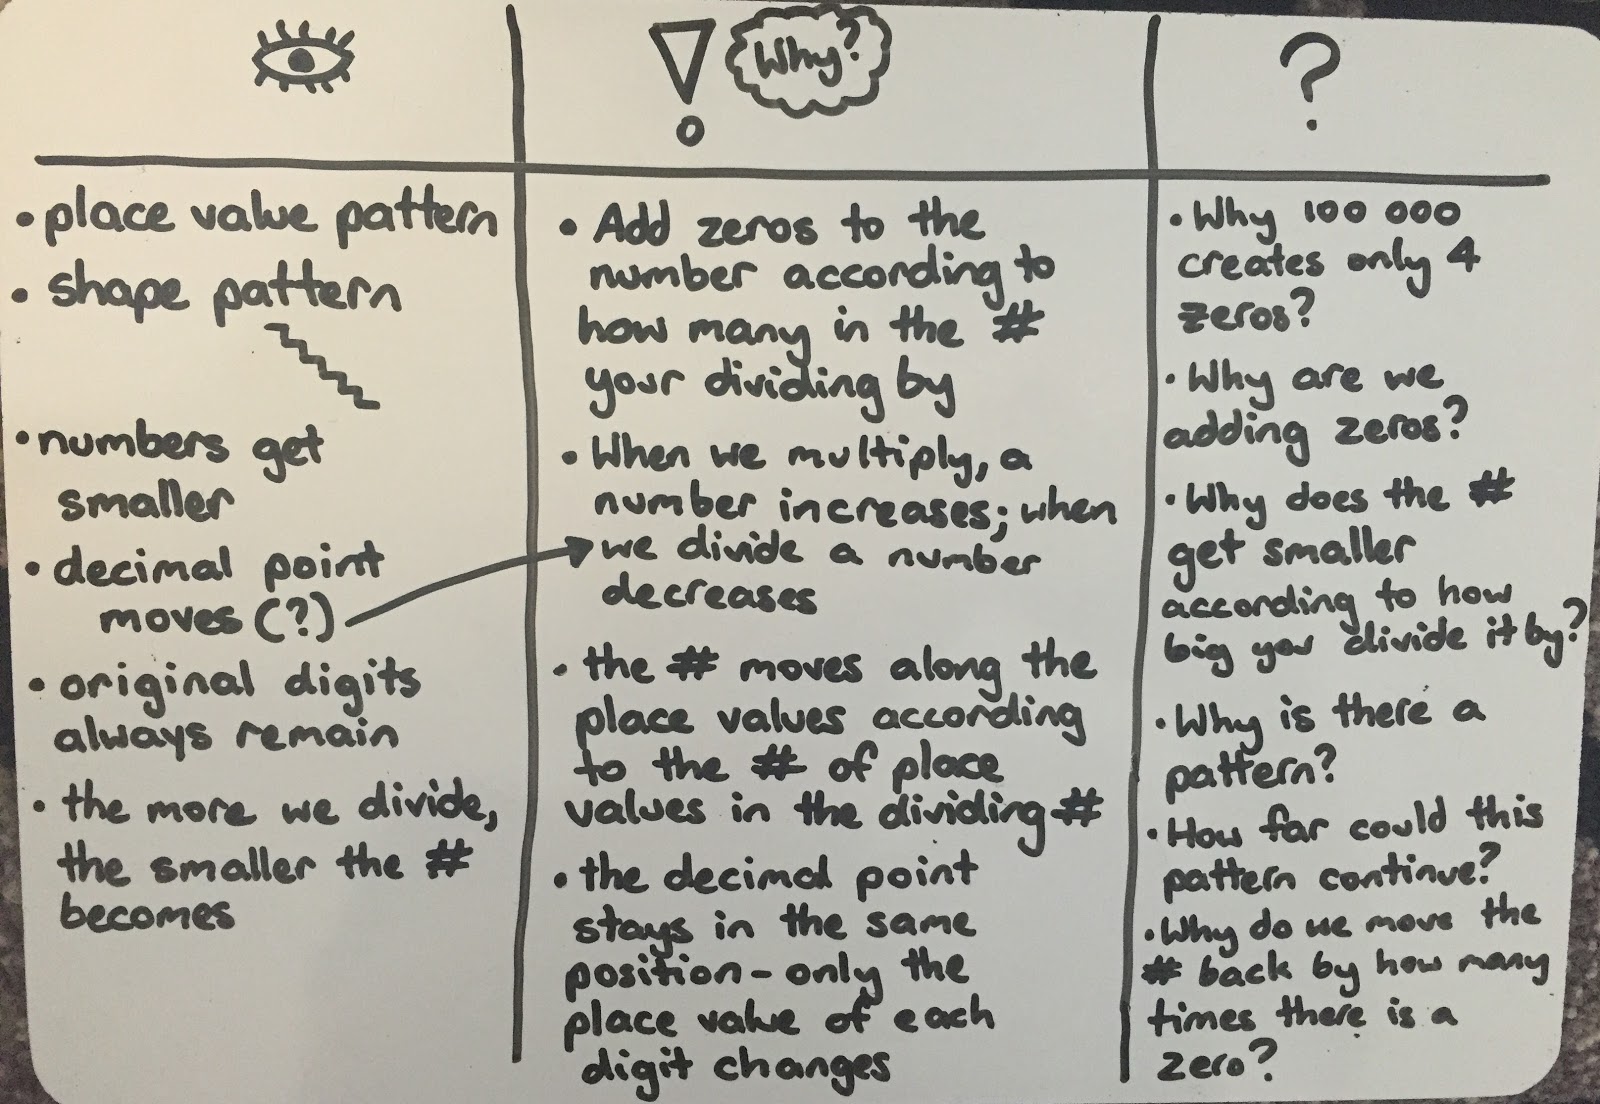 Why?
?
• place value pattern
• shape pattern
• numbers get
smaller
• decimal point
moves (?)
• original digits
always remain
• the more we divide,
the smaller the #
becomes
• Add zeros to the
number according to
how many in the #
your dividing by
• When we multiply, a
number increases; when
we divide a number
decreases
• the # moves along the
place values according
to the # of place
values in the dividing #
• the decimal point
stays in the same
position - only the
place value of each
digit changes
• Why 100 000
creates only 4
zeros?
• Why are we
adding zeros?
• Why does the #
get smaller
according to how
big you divide it by?
• Why is there a
pattern?
• How far could this
pattern continue?
• Why do we move the
# back by how many
times there is a
zero?